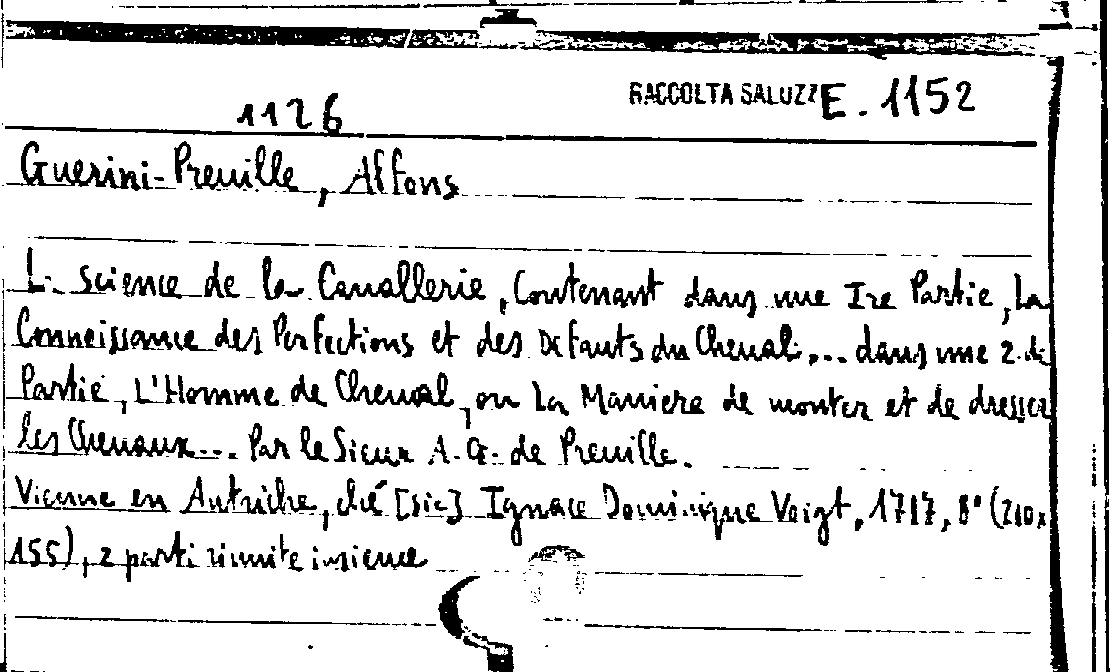 1126
RACCOLTA SALUZZ E. 1152
Guerini-Preuille, Alfons
La science de la Cavallerie, Contenant dans une Ire Partie, La
Conneissance des Perfections et des Defauts du Cheval... dans une 2. de
Partie, L'Homme de Cheval, ou La Maniere de monter et de dresser
les Chevaux... Par le Sieur A. G. de Preuille.
Vienne en Autriche, ché [sic] Ignace Dominique Voigt, 1717, 8° (210x
155), 2 parti riunite insieme